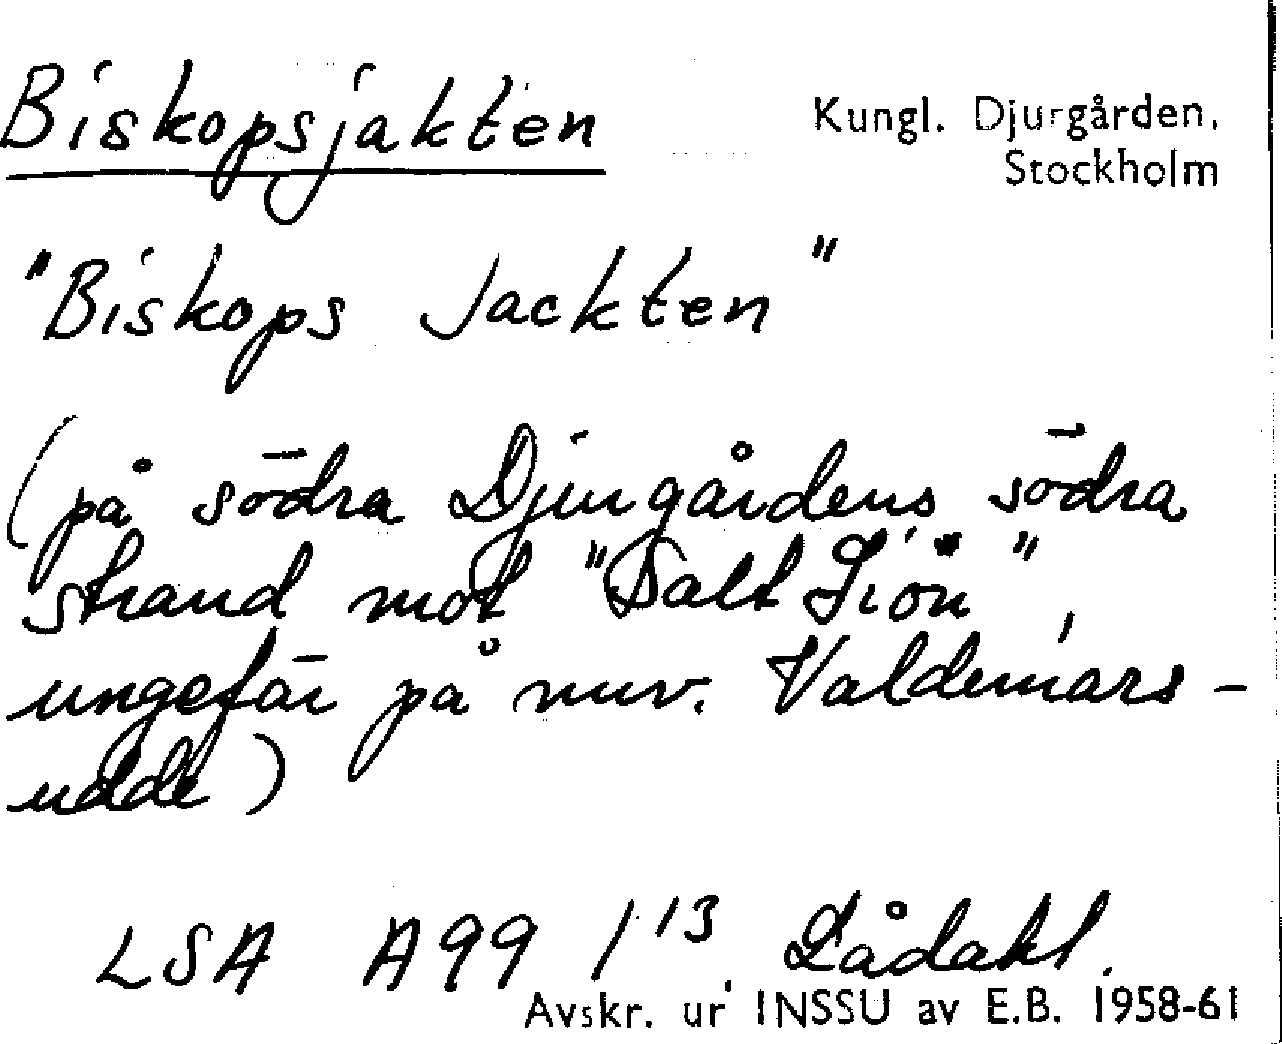 Biskopsjakten
Kungl. Djurgården,
Stockholm
"Biskops Jackten"
(på södra Djurgårdens södra
strand mot "Salt Siön",
ungefär på nuv. Valdemars-
udde)
LSA A99 1/13
Avskr. ur INSSU av E.B. 1958-61